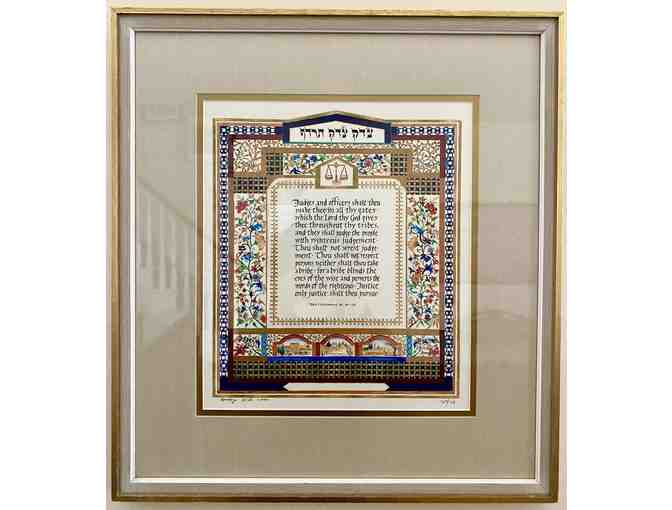 צדק צדק תרדף
Judges and officers shalt thou
make thee in all thy gates
which the Lord thy God gives
thee throughout thy tribes,
and they shall judge the people
with righteous judgement.
Thou shalt not wrest judge-
ment. Thou shalt not respect
persons neither shalt thou take
a bribe: for a bribe blinds the
eyes of the wise and perverts the
words of the righteous. Justice
only justice shalt thou pursue